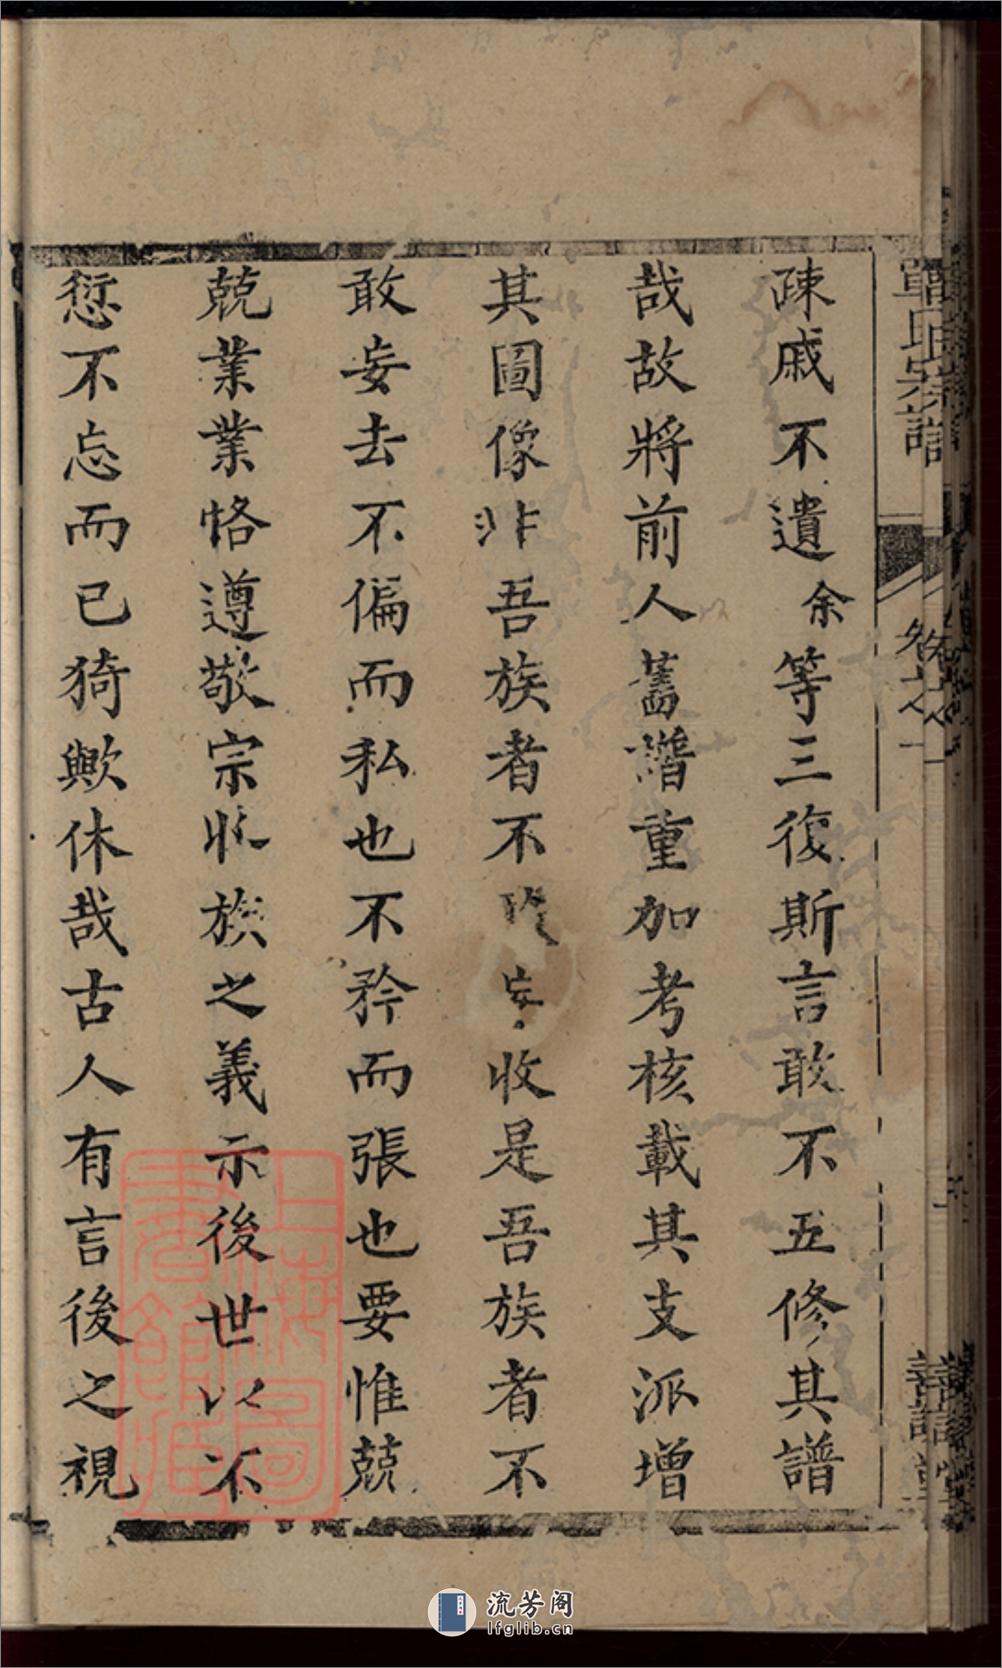 疎戚不遺余等三復斯言敢不五修其譜
哉故將前人舊譜重加考核載其支派增
其圖像非吾族者不敢妄收是吾族者不
敢妄去不偏而私也不矜而張也要惟兢
兢業業恪遵敬宗收族之義示後世以不
愆不忘而已猗歟休哉古人有言後之視
氏宗譜
卷之一
上海圖書館藏
流芳阁
lfglib.cn